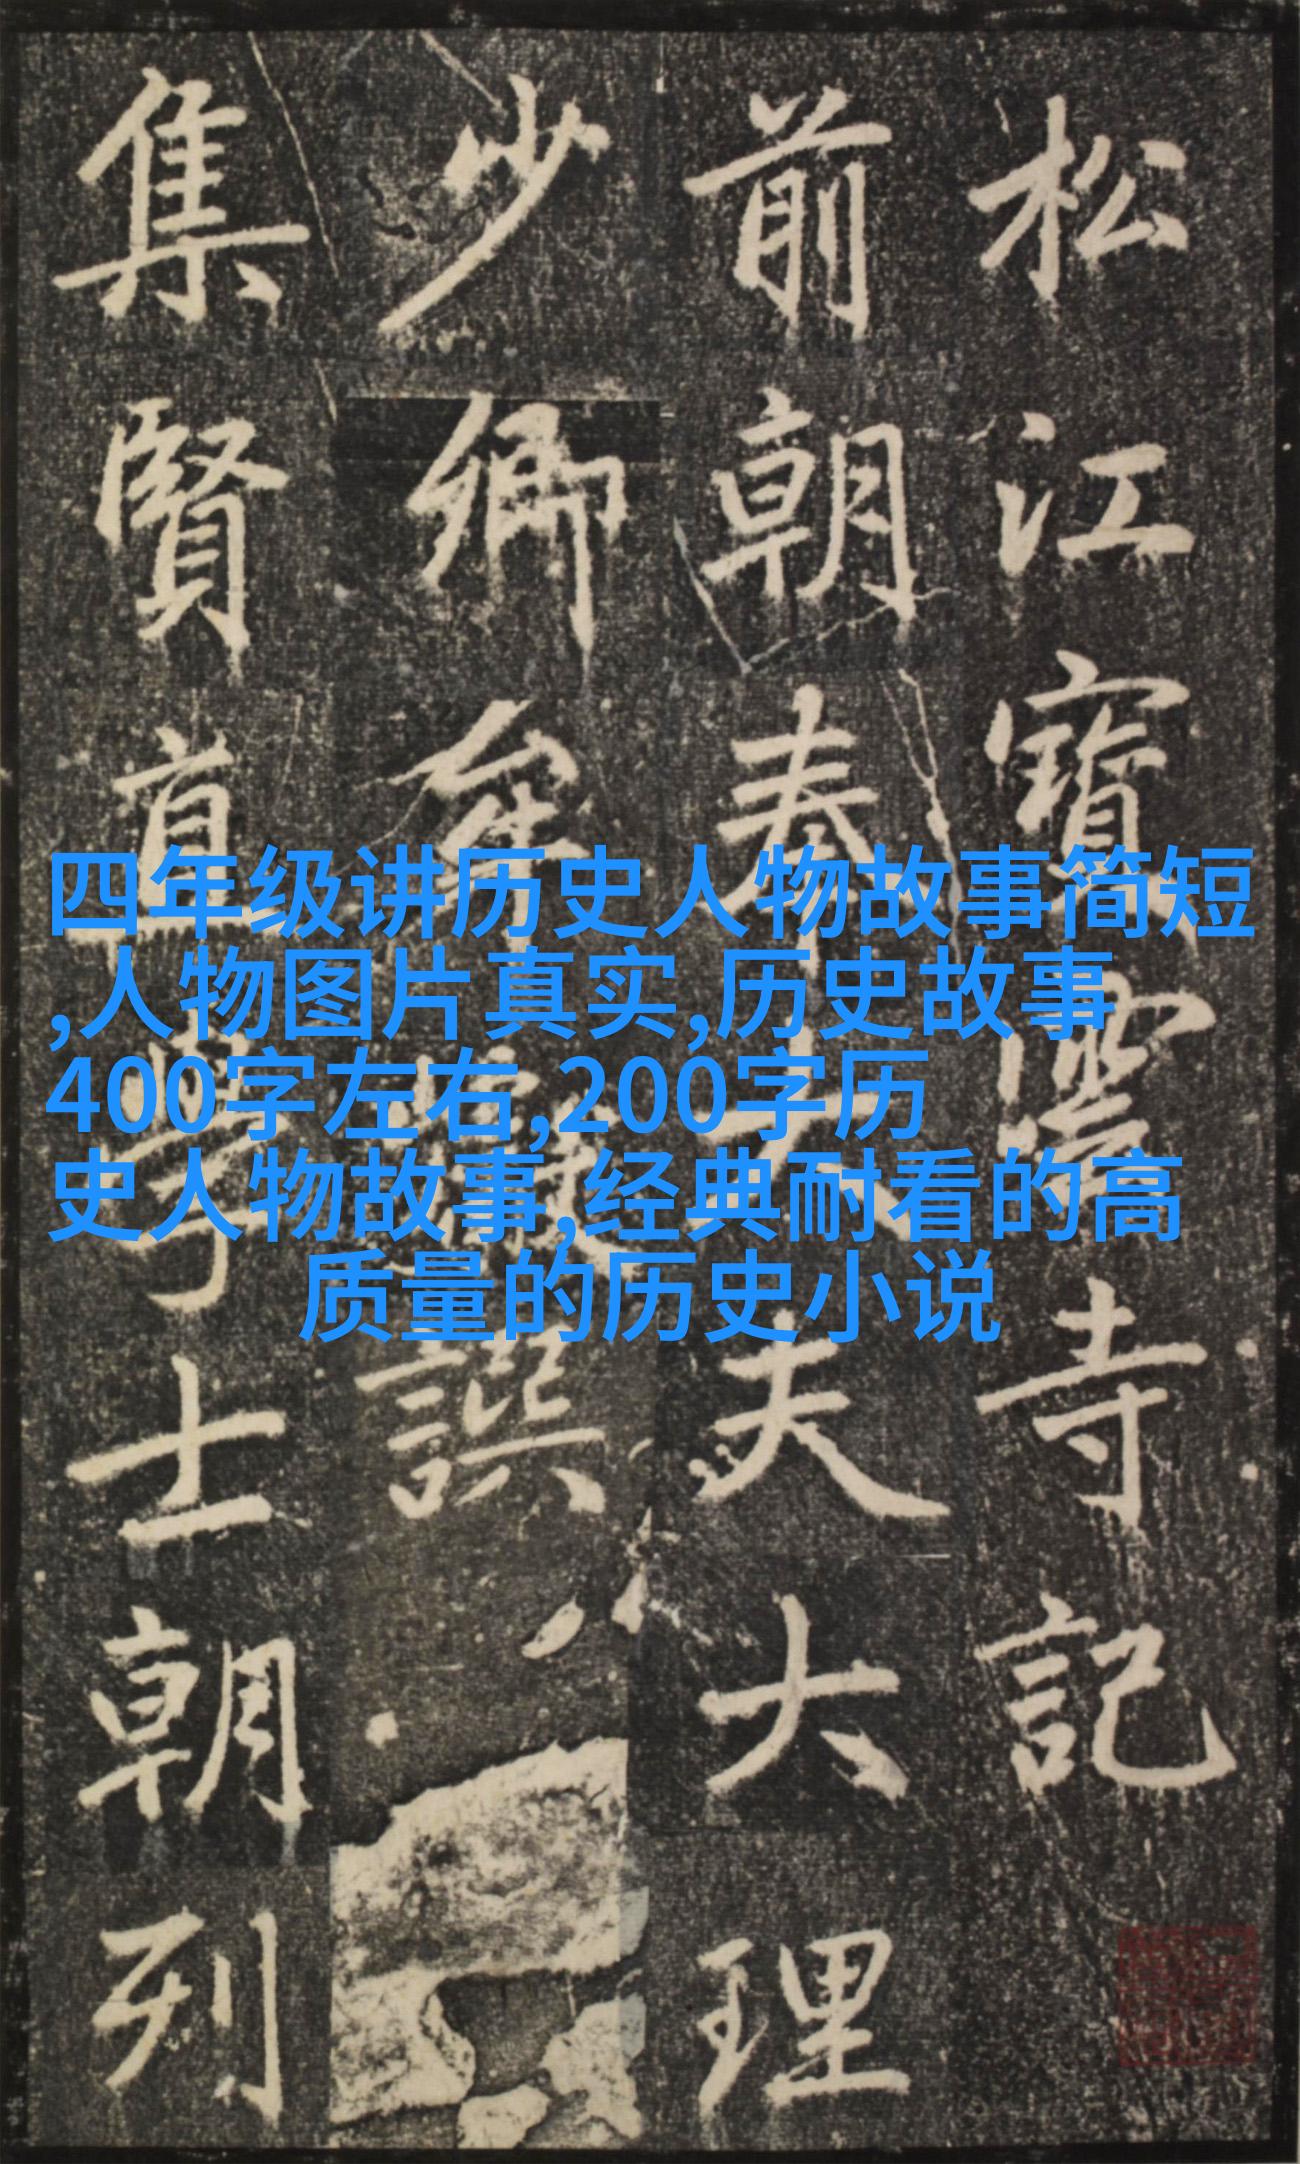 松江寶雲寺記
前朝奉大夫大理
少卿牟巘譔
集賢直學士朝列
四年级讲历史人物故事简短
,人物图片真实,历史故事
400字左右,200字历
史人物故事,经典耐看的高
质量的历史小说